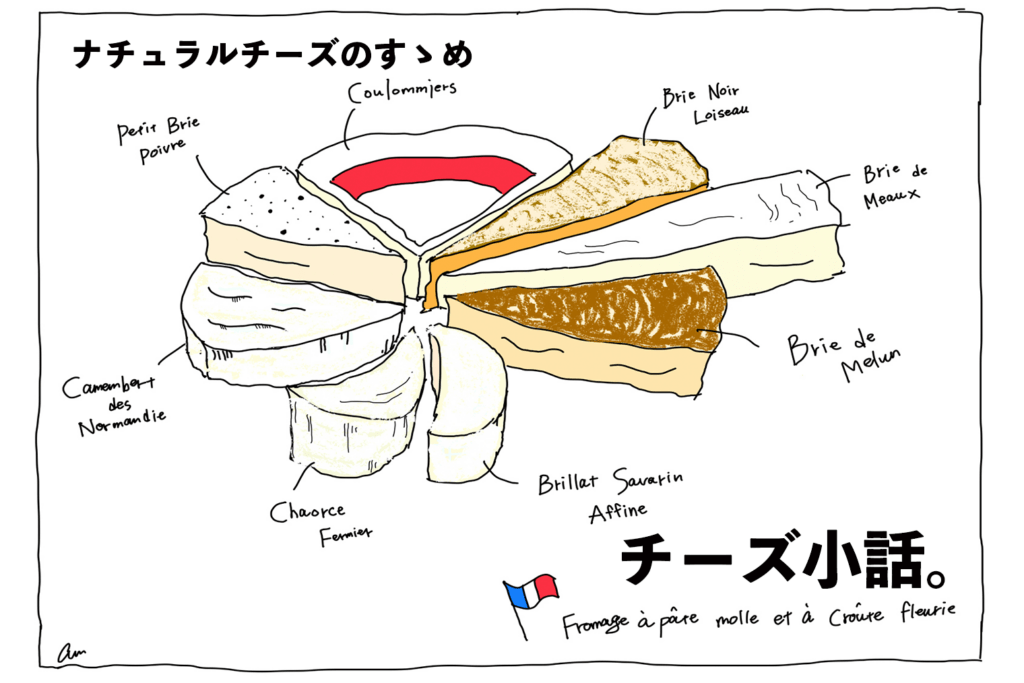 ナチュラルチーズのすゝめ
Coulommiers
Brie Noir
Loiseau
Petit Brie
Poivre
Brie de
Meaux
Brie de
Melun
Camembert
des
Normandie
Chaorce
Fermier
Brillat Savarin
Affine
チーズ小話。
Fromage à pâte molle et à Croûte fleurie
am